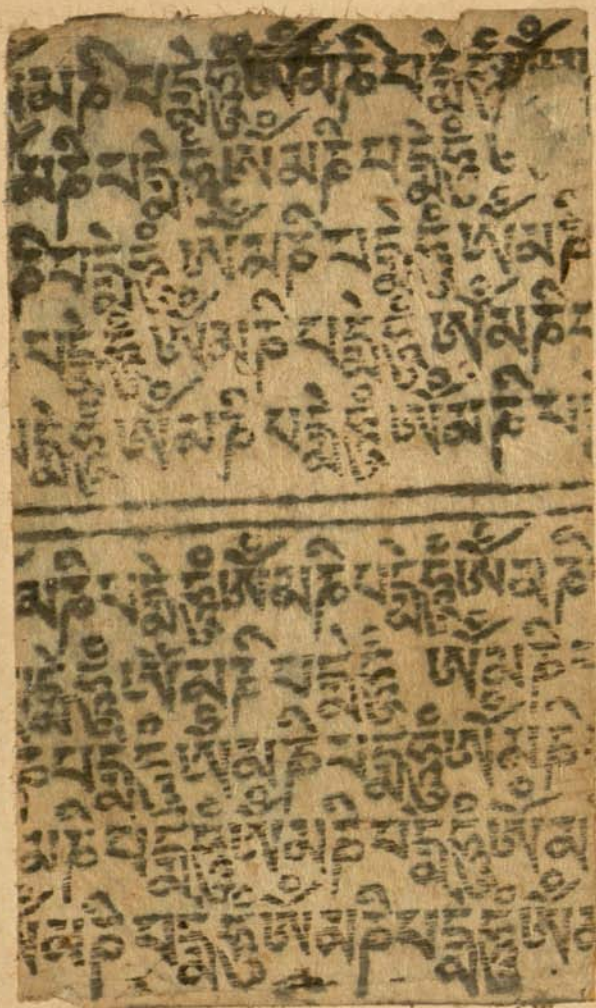 མཎིཔདྨེཧཱུྃཨོཾམཎིཔདྨེཧཱུྃ
མཎིཔདྨེཧཱུྃཨོཾམཎིཔདྨེཧཱུྃ
ཎིཔདྨེཧཱུྃཨོཾམཎིཔདྨེཧཱུྃཨོཾམཎི
པདྨེཧཱུྃཨོཾམཎིཔདྨེཧཱུྃཨོཾམཎི
པདྨེཧཱུྃཨོཾམཎིཔདྨེཧཱུྃཨོཾམཎིཔ
མཎིཔདྨེཧཱུྃཨོཾམཎིཔདྨེཧཱུྃཨོཾམཎི
དྨེཧཱུྃཨོཾམཎིཔདྨེཧཱུྃཨོཾམཎི
ཎིཔདྨེཧཱུྃཨོཾམཎིཔདྨེཧཱུྃཨོཾམཎི
མཎིཔདྨེཧཱུྃཨོཾམཎིཔདྨེཧཱུྃཨོཾམ
མཎིཔདྨེཧཱུྃཨོཾམཎིཔདྨེཧཱུྃཨོཾམ